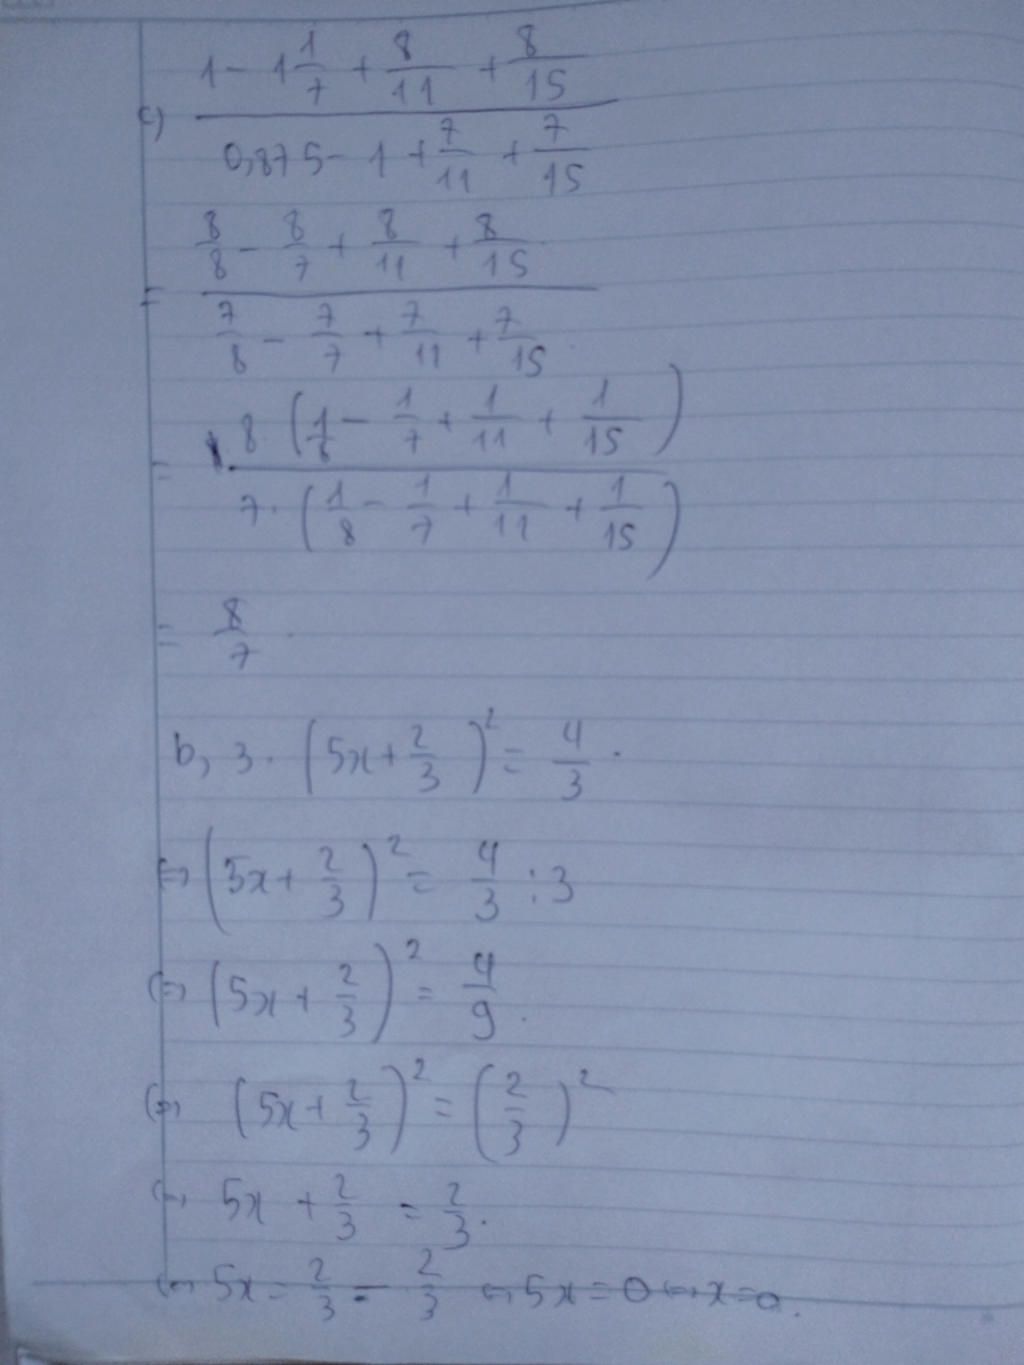 c) \frac{1 - 1\frac{1}{7} + \frac{8}{11} + \frac{8}{15}}{0,875 - 1 + \frac{7}{11} + \frac{7}{15}}
= \frac{\frac{8}{8} - \frac{8}{7} + \frac{8}{11} + \frac{8}{15}}{\frac{7}{8} - \frac{7}{7} + \frac{7}{11} + \frac{7}{15}}
= \frac{8 (\frac{1}{8} - \frac{1}{7} + \frac{1}{11} + \frac{1}{15})}{7 \cdot (\frac{1}{8} - \frac{1}{7} + \frac{1}{11} + \frac{1}{15})}
= \frac{8}{7}
b, 3 \cdot (5x + \frac{2}{3})^2 = \frac{4}{3}.
⇔ (5x + \frac{2}{3})^2 = \frac{4}{3} : 3
⇔ (5x + \frac{2}{3})^2 = \frac{4}{9}.
⇔ (5x + \frac{2}{3})^2 = (\frac{2}{3})^2
⇔ 5x + \frac{2}{3} = \frac{2}{3}.
⇔ 5x = \frac{2}{3} - \frac{2}{3} ⇔ 5x = 0 ⇔ x = 0.